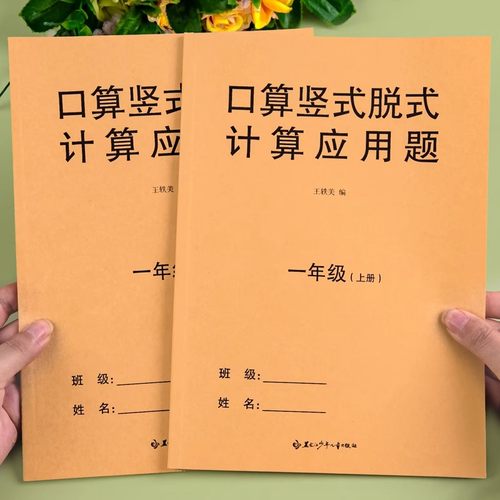 口算竖式
计算应
王轶美
一年级
班 级:
姓 名:
口算竖式脱式
计算应用题
王轶美 编
一年级(上册)
班 级:
姓 名:
黑龙江少年儿童出版社